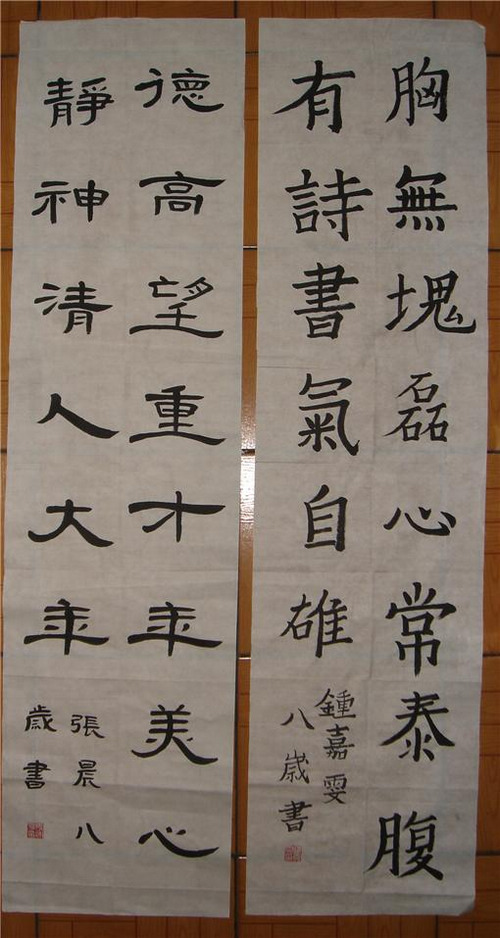 胸無塊磊心常泰腹
有詩書氣自雄
鍾嘉雯
八歲書
德高望重才年美心
靜神清人大年
張晨八
歲書